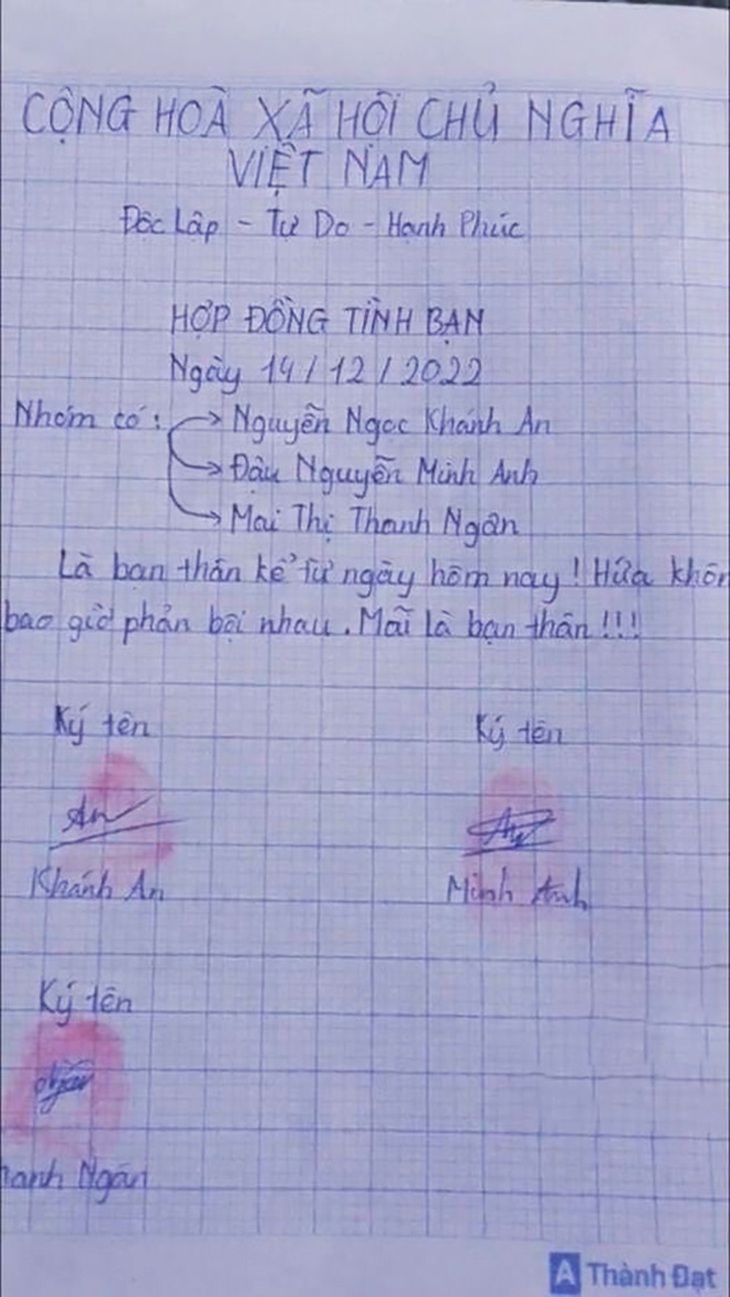 CỘNG HOÀ XÃ HỘI CHỦ NGHĨA
VIỆT NAM
Độc Lập - Tự Do - Hạnh Phúc
HỢP ĐỒNG TÌNH BẠN
Ngày 14/12/2022
Nhóm có: → Nguyễn Ngọc Khánh An
→ Đậu Nguyễn Minh Anh
→ Mai Thị Thanh Ngân
Là bạn thân kể từ ngày hôm nay! Hứa khôn
bao giờ phản bội nhau. Mãi là bạn thân!!!
Ký tên Ký tên
An
Khánh An Minh Anh
Ký tên
hanh Ngân
A Thành Đạt